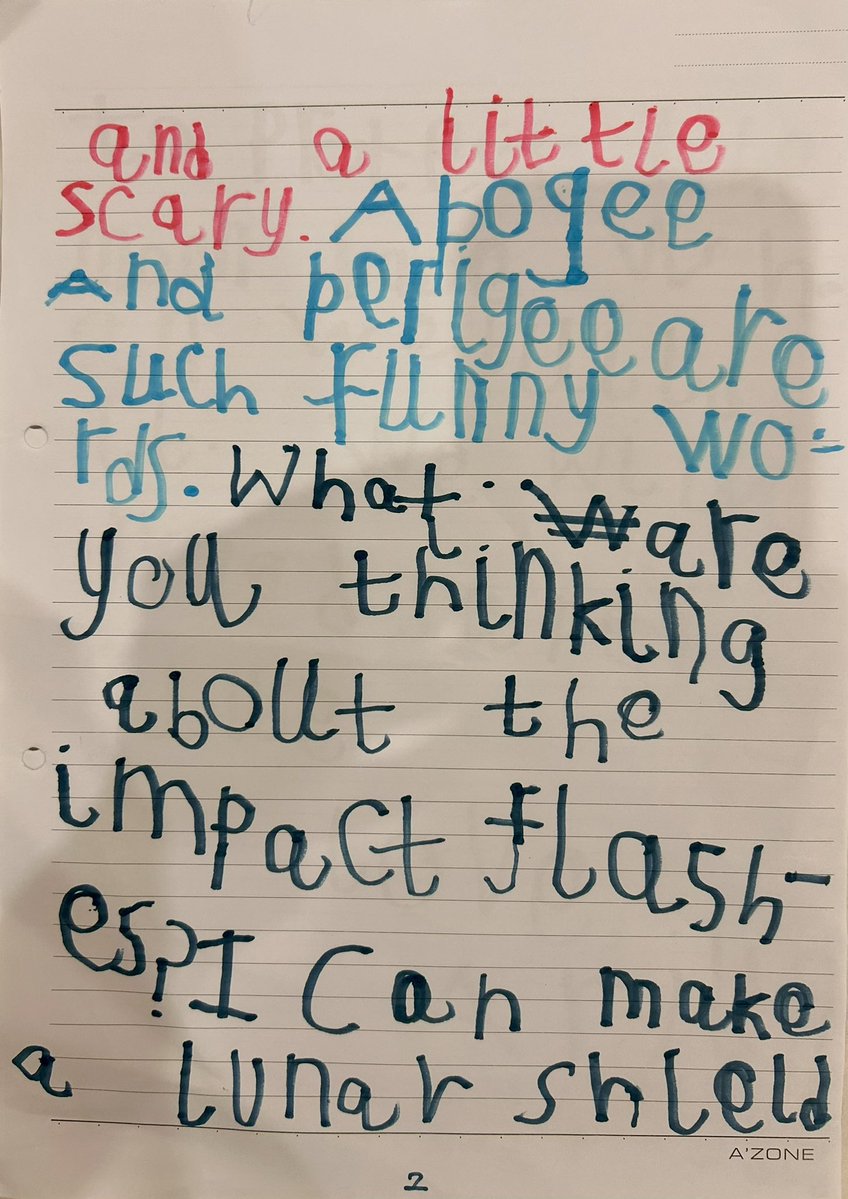 and a little
scary. Abogee
And perigee are
such funny wo-
rds. What are
you thinking
about the
impact flash-
es? I Can make
a lunar shield
A'ZONE
2